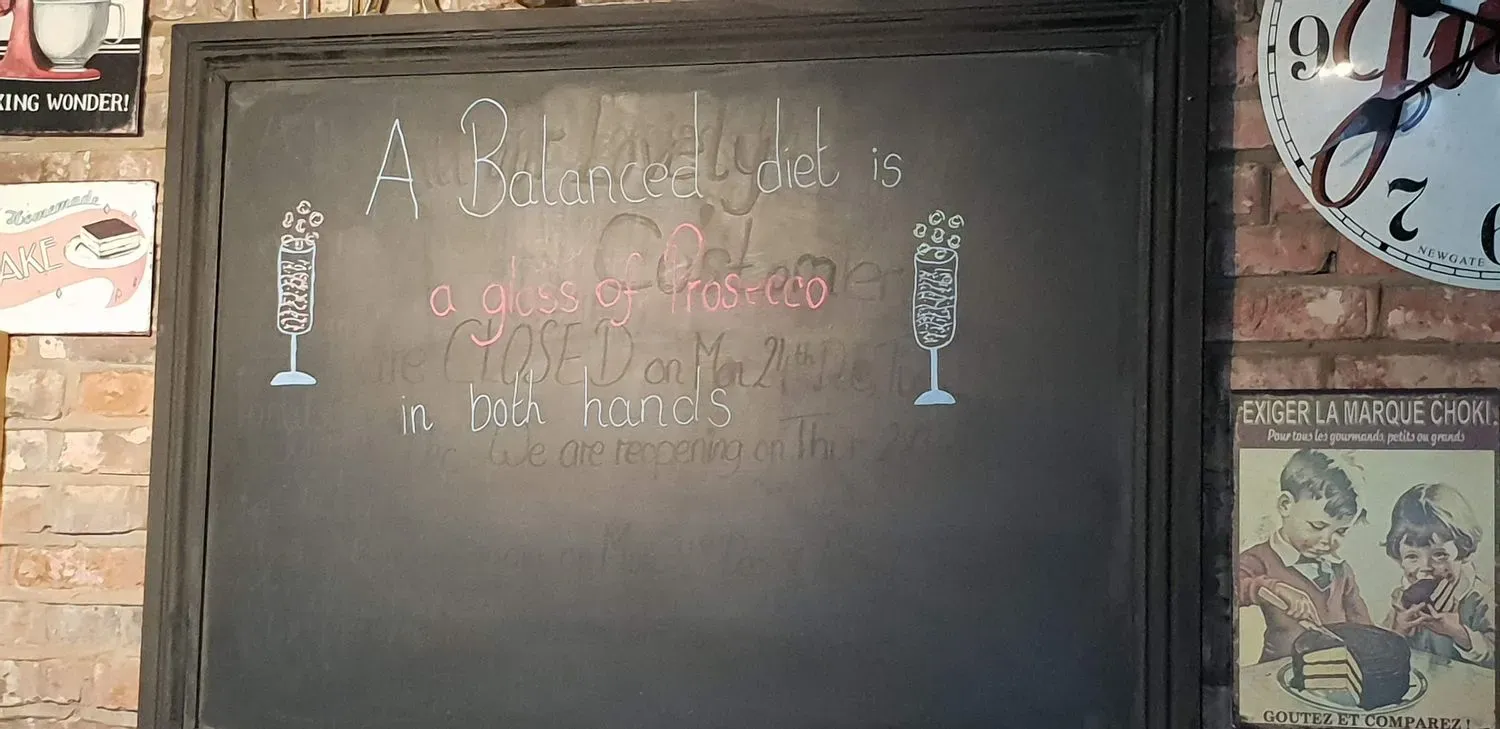 KING WONDER!
Homemade
AKE
A Balanced diet is
a glass of Prosecco
in both hands
lovely
CLOSED on Mon 24th
We are reopening on Thur
9
7
6
NEWGATE
EXIGER LA MARQUE CHOKI.
Pour tous les gourmands, petits ou grands
GOUTEZ ET COMPAREZ !